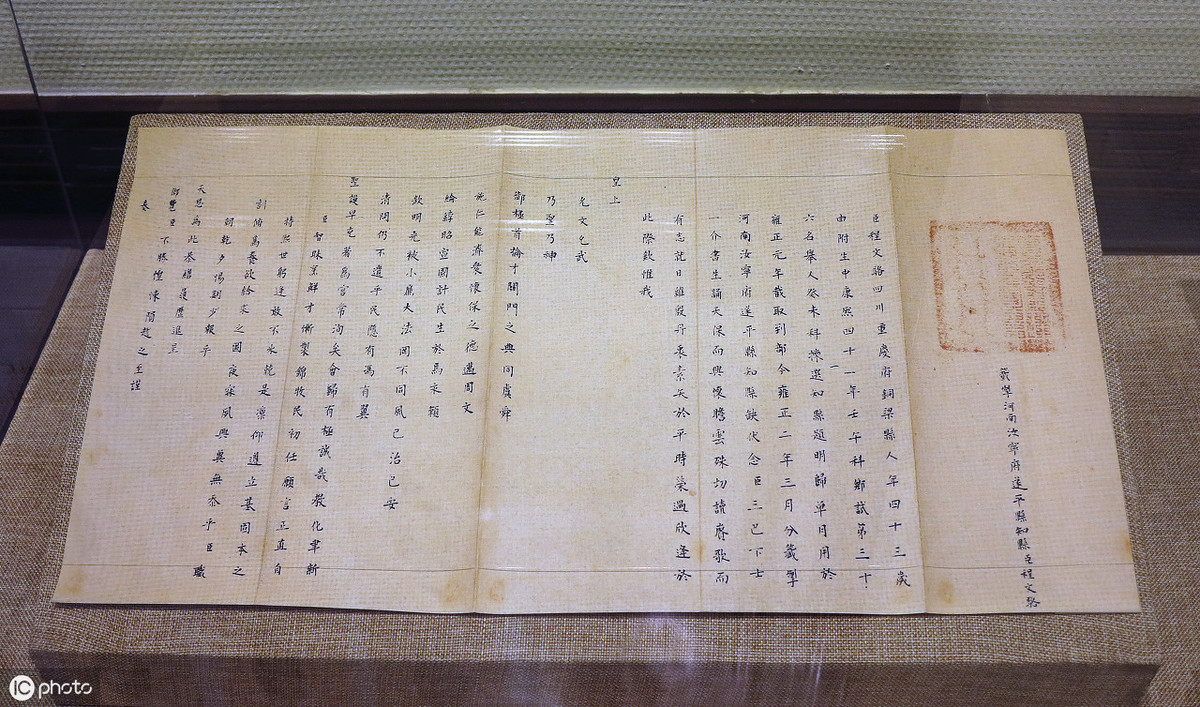 籤掣河南汝寧府遂平縣知縣臣程文駱
臣程文駱四川重慶府銅梁縣人年四十三歲
由附生中康熙四十一年壬午科鄉試第三十
六名舉人癸未科揀選知縣題明歸單月用於
雍正元年截取到部今雍正二年三月分籤掣
河南汝寧府遂平縣知縣缺伏念臣三巴下士
一介書生誦天保而興懷瞻雲殊切讀賡歌而
有志就日維殷丹衷素矢於平時榮遇欣逢於
此際欽惟我
皇上
允文允武
乃聖乃神
御極首掄才闢門之典同虞舜
施仁能濟衆懷保之德邁周文
綸綍昭宣國計民生於焉永賴
欽明光被小廉大法罔不同風已治已安
清問仍不遺乎民隱有為有翼
聖謨早克著為官常洵矣會歸有極誠哉教化聿新
臣智昧烹鮮才慚製錦牧民初任願言正直自
持
訓飭
朝乾夕惕
天恩為此恭繕履歷進呈
御覽臣不勝惶悚隕越之至謹
奏